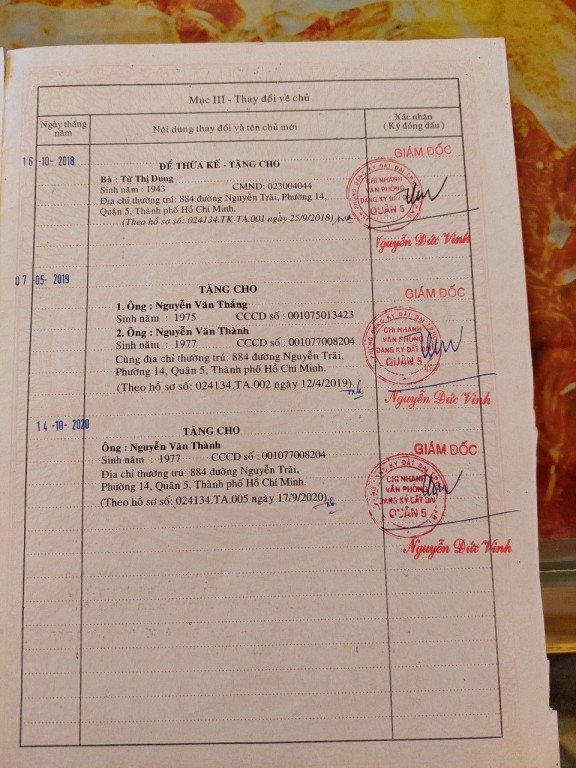 Mục III - Thay đổi về chủ
Ngày tháng năm
Nội dung thay đổi và tên chủ mới
Xác nhận
( Ký đóng dấu )
16 -10- 2018
ĐỂ THỪA KẾ - TẶNG CHO
Bà : Từ Thị Dung
Sinh năm : 1943 CMND: 023004044
Địa chỉ thường trú: 884 đường Nguyễn Trãi, Phường 14,
Quận 5, Thành phố Hồ Chí Minh.
(Theo hồ sơ số: 024134.TK-TA.001 ngày 25/9/2018)
GIÁM ĐỐC
CHI NHÁNH
VĂN PHÒNG
ĐĂNG KÝ ĐẤT ĐAI
QUẬN 5
Nguyễn Đức Vinh
07 -05- 2019
TẶNG CHO
1. Ông : Nguyễn Văn Thắng
Sinh năm : 1975 CCCD số : 001075013423
2. Ông : Nguyễn Văn Thành
Sinh năm : 1977 CCCD số : 001077008204
Cùng địa chỉ thường trú: 884 đường Nguyễn Trãi,
Phường 14, Quận 5, Thành phố Hồ Chí Minh.
(Theo hồ sơ số: 024134.TA.002 ngày 12/4/2019).
GIÁM ĐỐC
CHI NHÁNH
VĂN PHÒNG
ĐĂNG KÝ ĐẤT ĐAI
QUẬN 5
Nguyễn Đức Vinh
14 -10- 2020
TẶNG CHO
Ông : Nguyễn Văn Thành
Sinh năm : 1977 CCCD số : 001077008204
Địa chỉ thường trú: 884 đường Nguyễn Trãi,
Phường 14, Quận 5, Thành phố Hồ Chí Minh.
(Theo hồ sơ số: 024134.TA.005 ngày 17/9/2020)
GIÁM ĐỐC
CHI NHÁNH
VĂN PHÒNG
ĐĂNG KÝ ĐẤT ĐAI
QUẬN 5
Nguyễn Đức Vinh